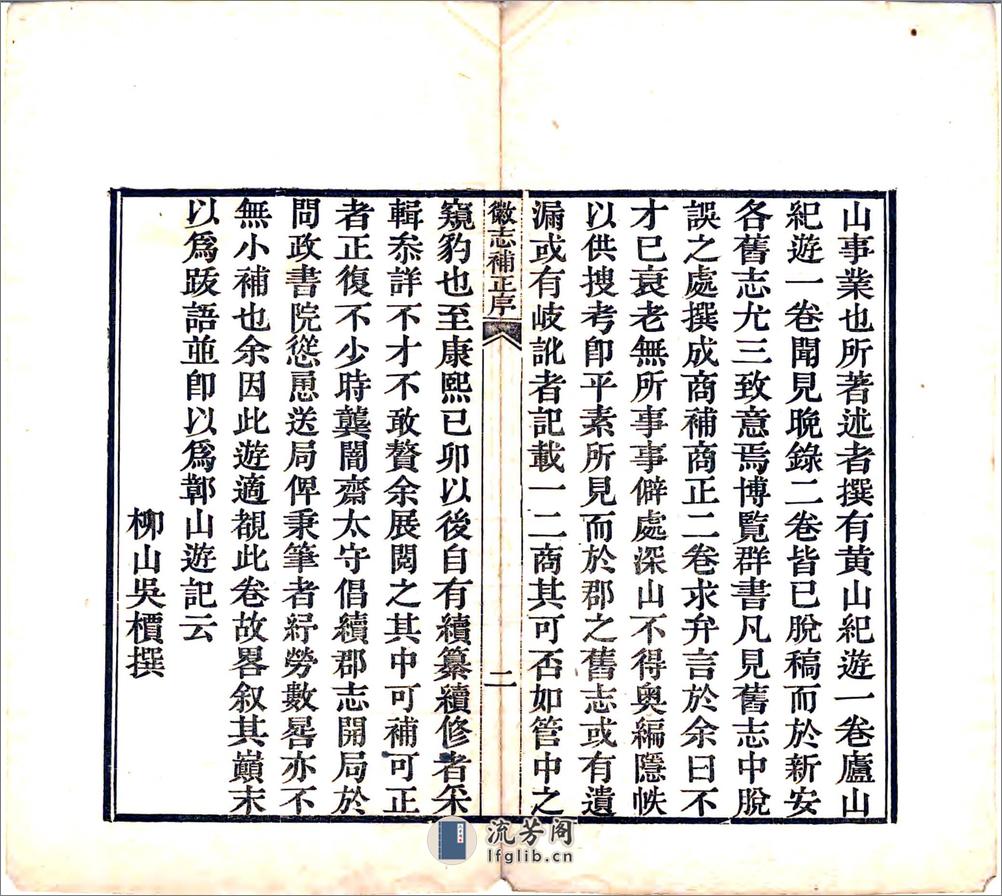 山事業也所著述者撰有黃山紀遊一卷廬山
紀遊一卷聞見晚錄二卷皆已脫稿而於新安
各舊志尤三致意焉博覽群書凡見舊志中脫
誤之處撰成商補商正二卷求弁言於余曰不
才已衰老無所事事僻處深山不得奧編隱帙
以供搜考卽平素所見而於郡之舊志或有遺
漏或有岐訛者記載一二商其可否如管中之
徽志補正序
二
窺豹也至康熙已卯以後自有續纂續修者采
輯叅詳不才不敢贅余展閱之其中可補可正
者正復不少時龔闇齋太守倡續郡志開局於
問政書院慫恿送局俾秉筆者紓勞數晷亦不
無小補也余因此遊適覩此卷故畧叙其巔末
以爲跋語並卽以爲鄣山遊記云
柳山吳槚撰
流芳阁
lfglib.cn